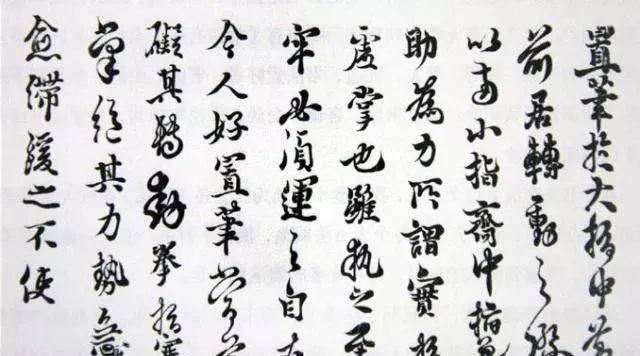 置筆於大指中節
前居轉動之際
以小指齊中指
助為力所謂實指
虛掌也雖執之至
牢必須運之自在
今人好置筆當節
礙其轉動拳指塞
掌絕其力勢
愈滯緩不使